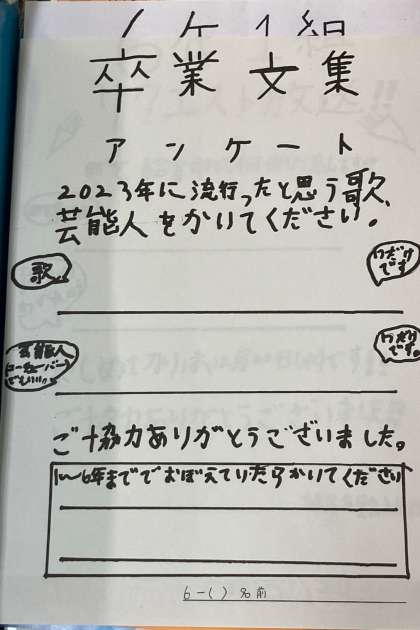 卒業文集
アンケート
2023年に流行ったと思う歌、
芸能人をかいてください。
歌
1つだけ
です
芸能人
ユーチューバー
でもいい
1つだけ
です。
ご協力ありがとうございました。
1〜6年まででおぼえていたらかいてください
6-( ) 名前